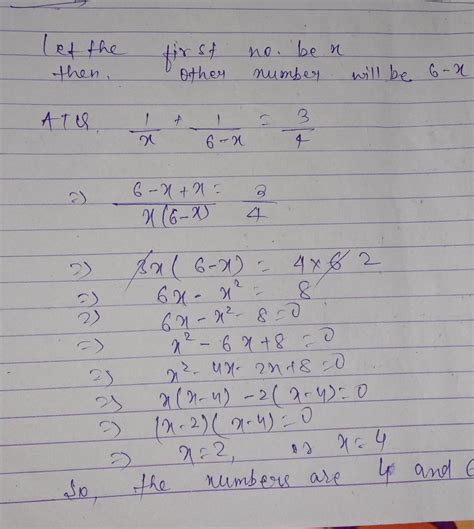 Let the first no. be x
then. Other number will be 6-x
ATQ, 1/x + 1/6-x = 3/4
=> 6-x+x/x(6-x) = 3/4
=> 3x(6-x) = 4×6 2
=> 6x-x² = 8
=> 6x-x²-8=0
=> x²-6x+8=0
=> x²-4x-2x+8=0
=> x(x-4)-2(x-4)=0
=> (x-2)(x-4)=0
=> x=2, x=4
So, the numbers are 4 and